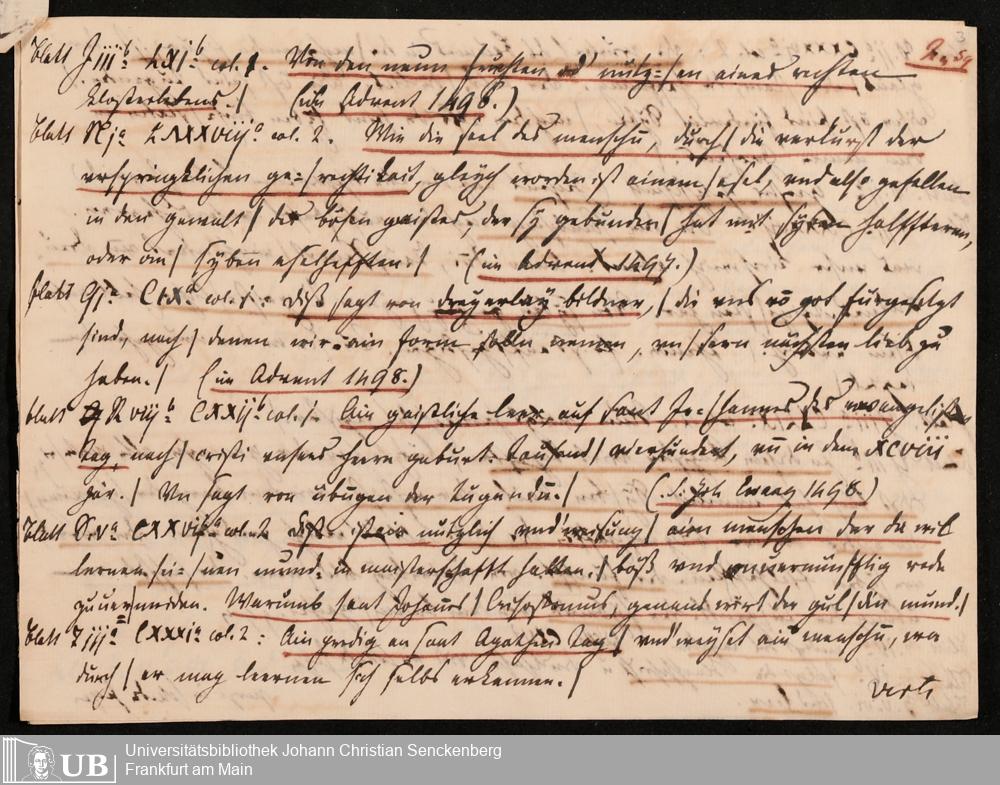 Blatt J iij b. LXj b col. 1. Von den neun fruchten od' nutz=|en aines rechten
Klosterlebens./ (im Advent 1498.)
Blatt col. 2. Wie die seel des menschn, durch| die verlurst der
urspringklichen ge=|rechtikait, gleych worden ist ainem| esel, und also gefallen
in den gewalt| der bösen gaistes, der sy gebunden| hat mit syben halfftern,
oder ain| syben eselhefften./ (im Advent 1497.)
blatt col. 1: Diß sagt von dreyerlay bildner,| die uns vō got fürgesetzt
sind, nach| denen wir ain form sölln nemen, un|sern nächsten lieb zu
haben./ (im Advent 1498.)
blatt R viij b CXXij b col. 1. Ain gaistliche leer, auf sant Jo=|hannes des ewangelisten
tag, nach| cristi unsers herrn geburt. tausend| vierhundert, uñ in dem XCVIII
jar./ Un sagt von übugen der tugendn./ (S. Joh Evang 1498.)
Blatt S.v a CXXvij a col. 2 Diß ist ein nutzlich und'weisung| aim menschen der da wil
lernen sei=|nen mund in maisterschafft halten./ böß und unvernünfftig rede
zuuer|meiden. Warumb sant Johannes| Crisostomus, genant wirt der gul|din mund./
Blatt Z iij a CXXXj a col. 2: Ain predig an sant Agathen tag| und'weyset ain menschn, wa
durch| er mag leernen sich selbs erkennen./
verte
UB
Universitätsbibliothek Johann Christian Senckenberg
Frankfurt am Main